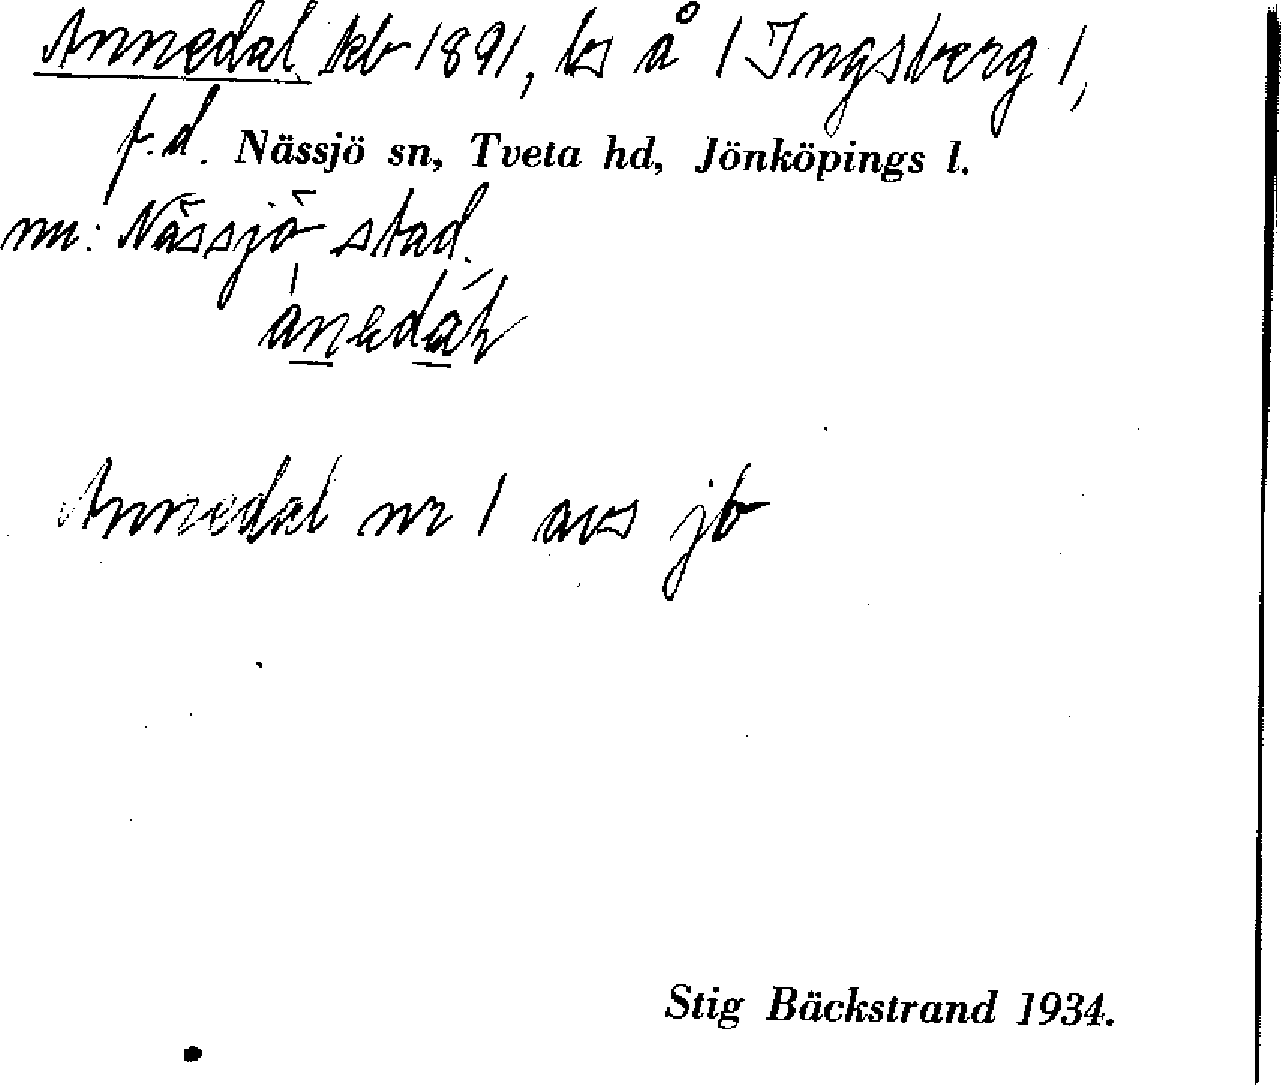 Annedal kb 1891, ls å 1 Ingsberg 1,
f.d. Nässjö sn, Tveta hd, Jönköpings l.
nu: Nässjö stad.
Annedal nr 1 avs jb
Stig Bäckstrand 1934.